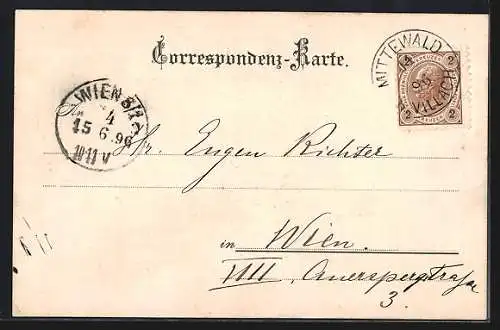 Correspondenz-Karte.
MITTEWALD
14
96
VILLACH
2 2
2 2
WIEN
4
15 6 96
10-11 V
An
Hr. Eugen Richter
in Wien.
VIII, Auerspergstrasse
3.